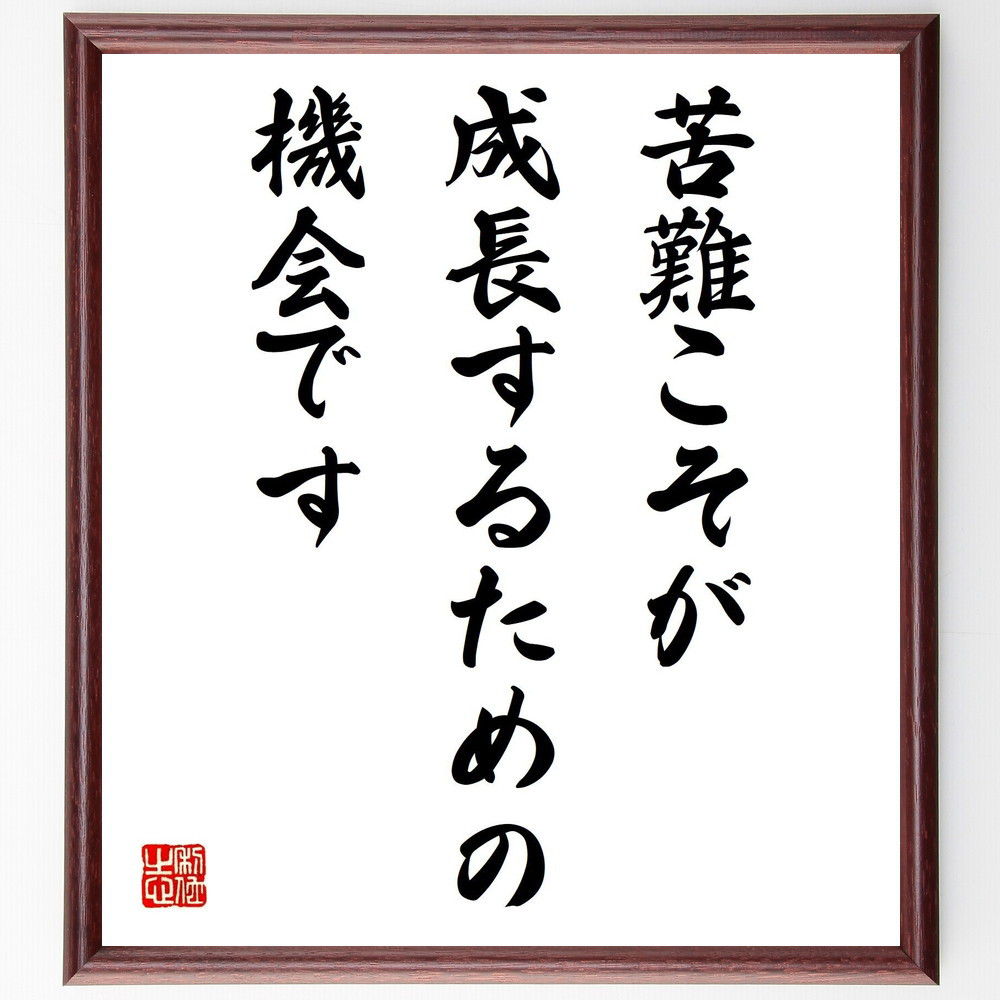 苦難こそが
成長するための
機会です